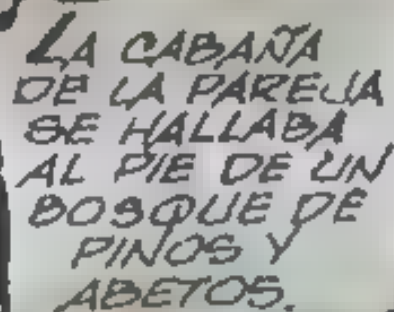 LA CABAÑA
DE LA PAREJA
SE HALLABA
AL PIE DE UN
BOSQUE DE
PINOS Y
ABETOS.